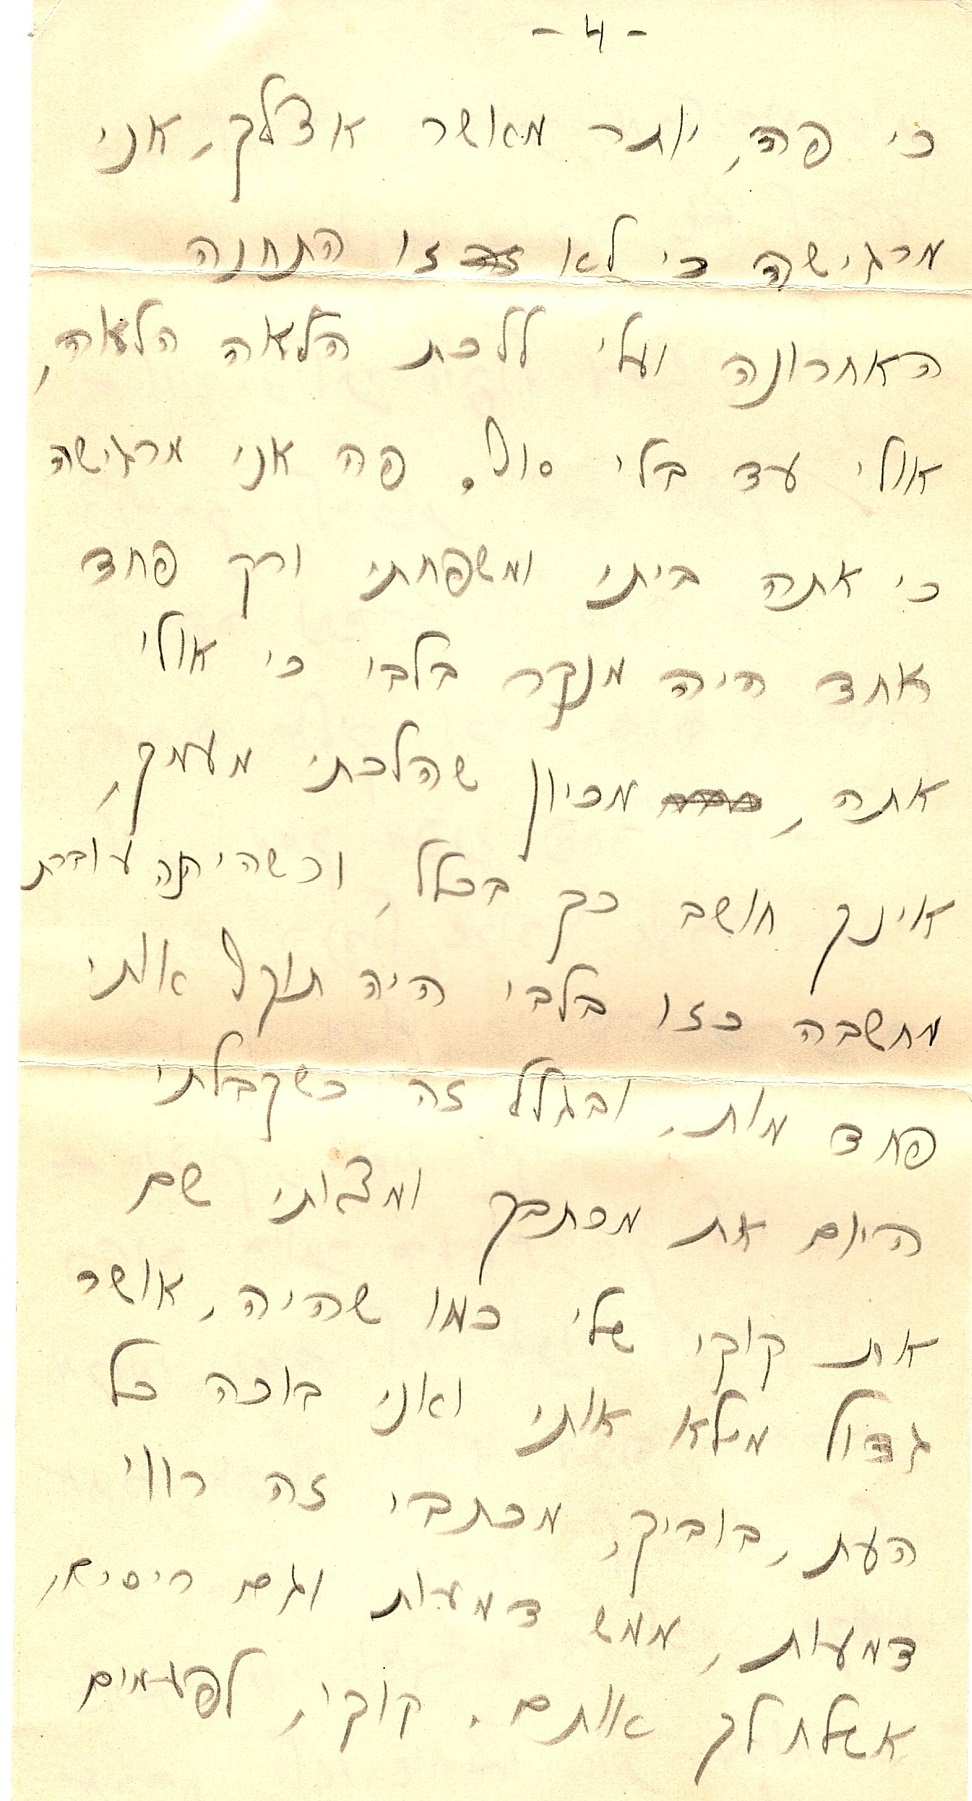 - 4 -
כי פה, יותר מאושר אצלך, אני
מרגישה כי לא זו התחנה
האחרונה ועלי ללכת הלאה הלאה,
אולי עד בלי סוף. פה אני מרגישה
כי אתה ביתי ומשפחתי ורק פחד
אחד היה מנקר בלבי כי אולי
אתה, מכיון שהלכתי מעמך,
אינך חושב כך בכלל, וכשהיתה עוברת
מחשבה כזו בלבי היה תוקף אותי
פחד מות. ובגלל זה כשקבלתי
היום את מכתבך ומצאתי שם
את קוקי שלי כמו שהיה, אושר
גדול מלא אותי ואני בוכה כל
העת, בוביק, מכתבי זה רווי
דמעות, ממש דמעות וגם ריסים,
אשלח לך אותם. קוקי, לפעמים